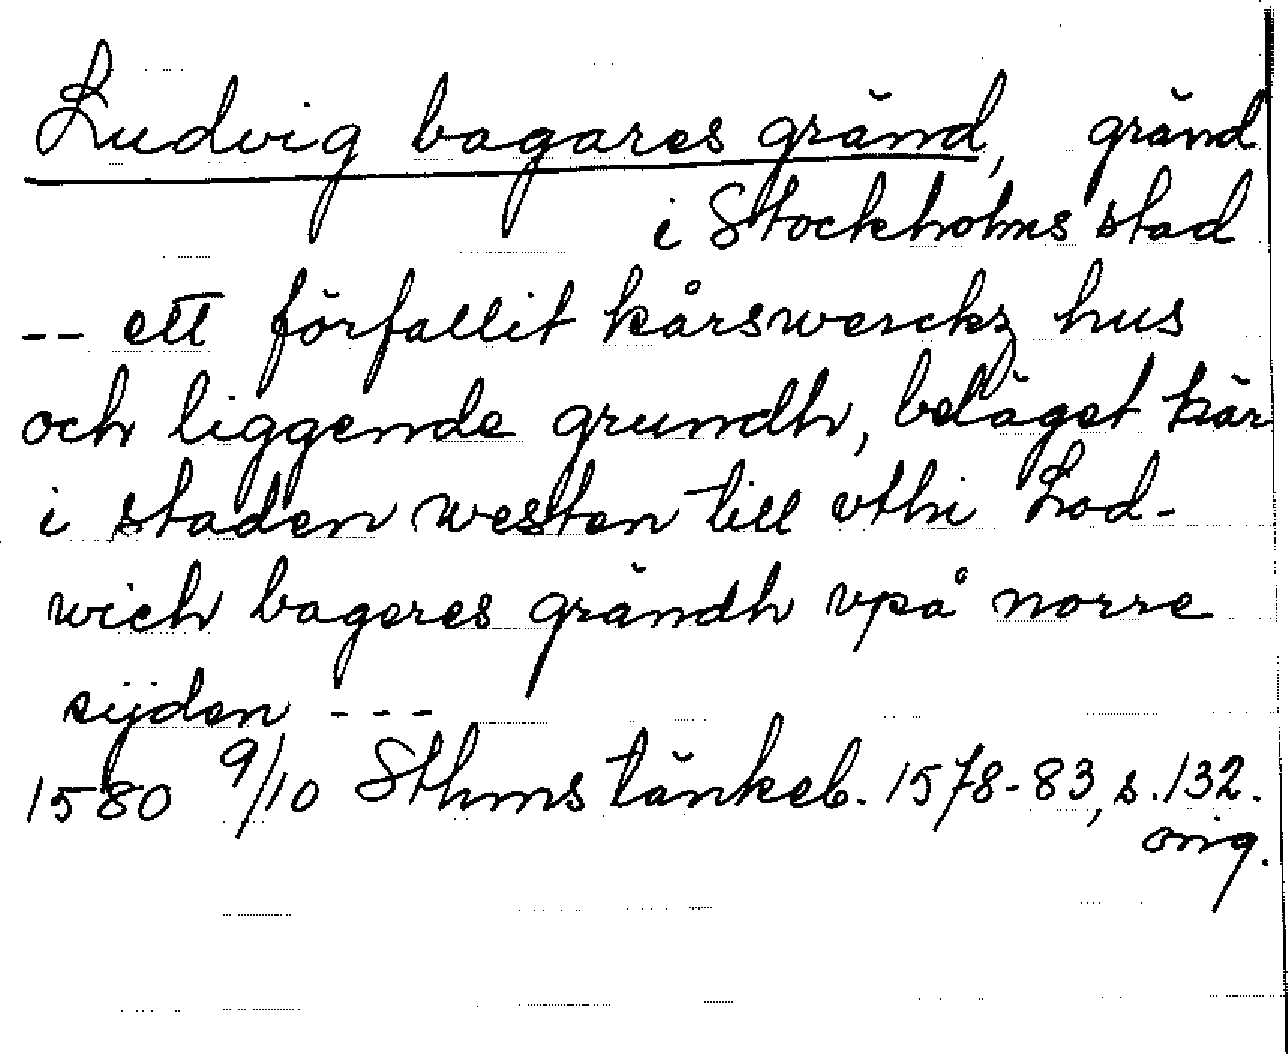 Ludvig bagares gränd, gränd
i Stockholms stad
-- ett förfallit kårswerckz hus
och liggende grundh, beläget här
i staden westen till vthi Lod-
wich bageres grändh vpå norre
sijden ---
1580 9/10 Sthms tänkeb. 1578-83, s. 132.
orig.